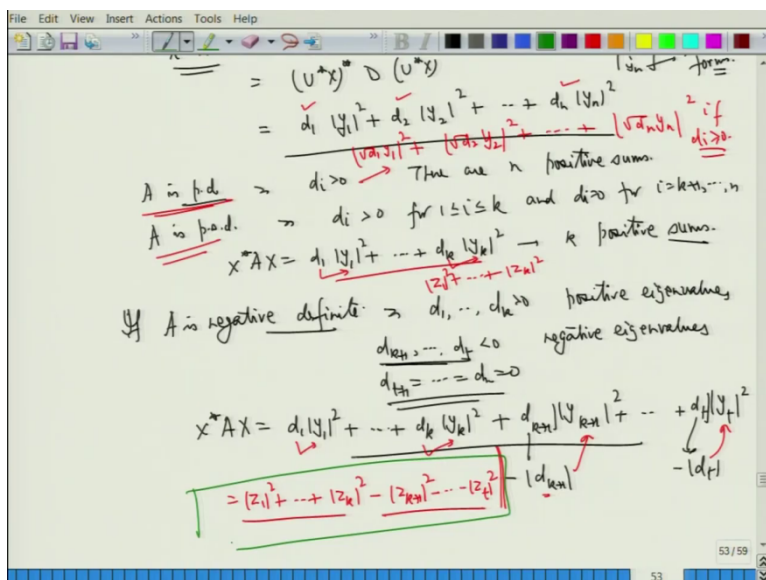 File Edit View Insert Actions Tools Help
= (U*X)* D (U*X)
= d₁|y₁|² + d₂|y₂|² + ⋯ + dₙ|yₙ|²
|√d₁y₁|² + |√d₂y₂|² + ⋯ + |√dₙyₙ|² if dᵢ≥0.
A is p.d. ⇒ dᵢ>0 → There are n positive sums.
A is p.s.d. ⇒ dᵢ>0 for 1≤i≤k and dᵢ=0 for i=k+1,⋯,n
x*AX = d₁|y₁|² + ⋯ + dₖ|yₖ|² → k positive sums.
|z₁|² + ⋯ + |zₖ|²
If A is negative definite ⇒ d₁,⋯,dₖ>0 positive eigenvalues
dₖ₊₁,⋯,dₜ<0 negative eigenvalues
dₜ₊₁=⋯=dₙ=0
x*AX = d₁|y₁|² + ⋯ + dₖ|yₖ|² + dₖ₊₁|yₖ₊₁|² + ⋯ + dₜ|yₜ|²
-|dₖ₊₁| -|dₜ|
= |z₁|² + ⋯ + |zₖ|² - |zₖ₊₁|² - ⋯ - |zₜ|²
53 / 59
53